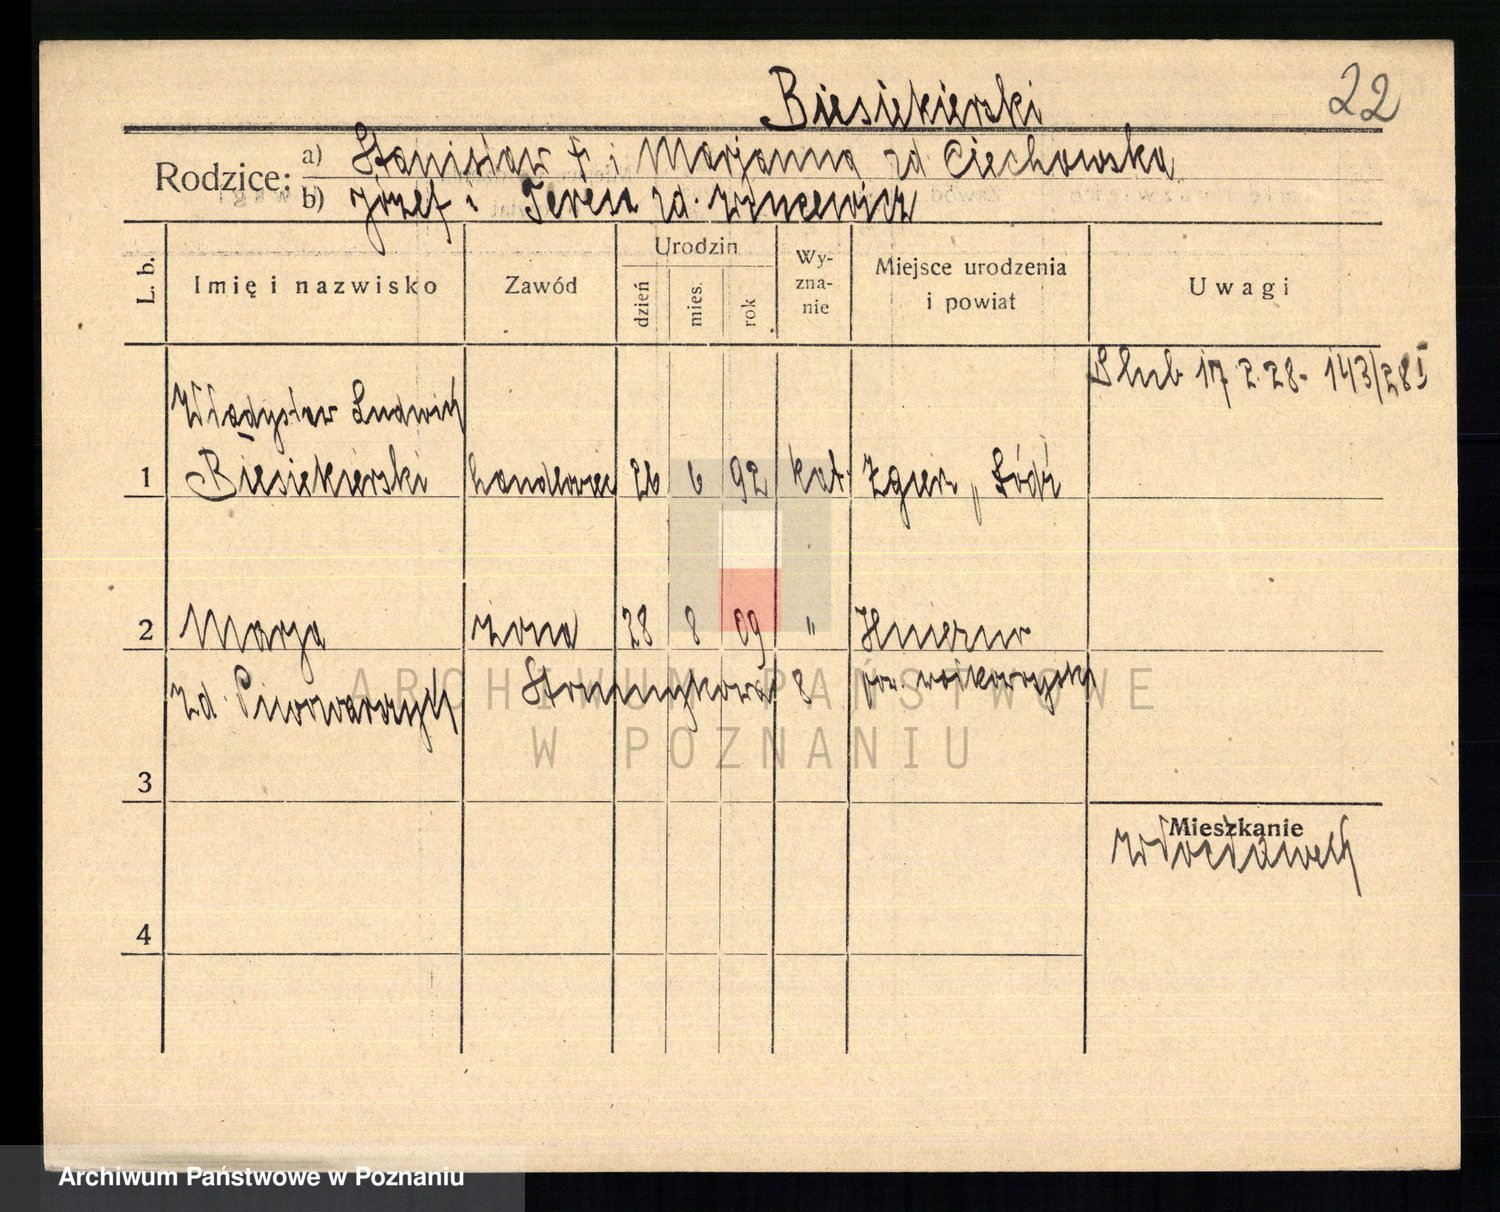 22
Biesiekierski
Rodzice:
a) Stanisław † i Marjanna zd. Ciechowska
b) Józef i Teresa zd. Wincewicz
L. b.
Imię i nazwisko
Zawód
Urodzin
dzień
mies.
rok
Wy-
zna-
nie
Miejsce urodzenia
i powiat
Uwagi
Ślub 17 2.28 - 143/28 I
Władysław Ludwik
1 Biesiekierski handlowiec 26 6 92 kat. Zgierz, Łódź
2 Marja żona 28 8 09 "
zd. Piowarczyk 8 pow.
3
4
Mieszkanie
Włocławek
ARCHIWUM PAŃSTWOWE
W POZNANIU
Archiwum Państwowe w Poznaniu